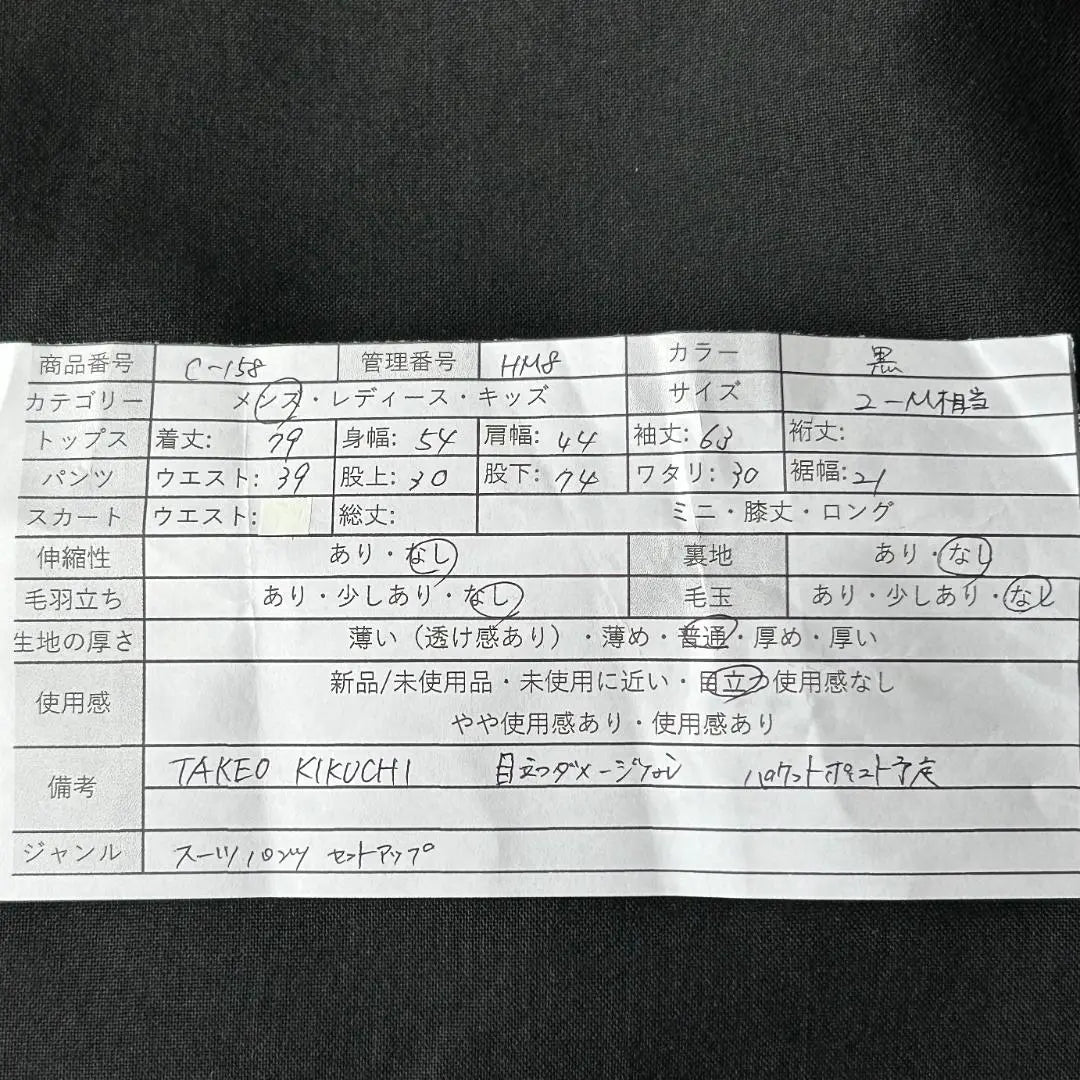 商品番号 C-158 管理番号 HM8 カラー 黒
カテゴリー メンズ・レディース・キッズ サイズ 2-M相当
トップス 着丈: 79 身幅: 54 肩幅: 44 袖丈: 63 裄丈:
パンツ ウエスト: 39 股上: 30 股下: 74 ワタリ: 30 裾幅: 21
スカート ウエスト: 総丈: ミニ・膝丈・ロング
伸縮性 あり・なし 裏地 あり・なし
毛羽立ち あり・少しあり・なし 毛玉 あり・少しあり・なし
生地の厚さ 薄い（透け感あり）・薄め・普通・厚め・厚い
使用感 新品/未使用品・未使用に近い・目立つ使用感なし
やや使用感あり・使用感あり
備考 TAKEO KIKUCHI 目立つダメージなし
ジャンル スーツ パンツ セットアップ